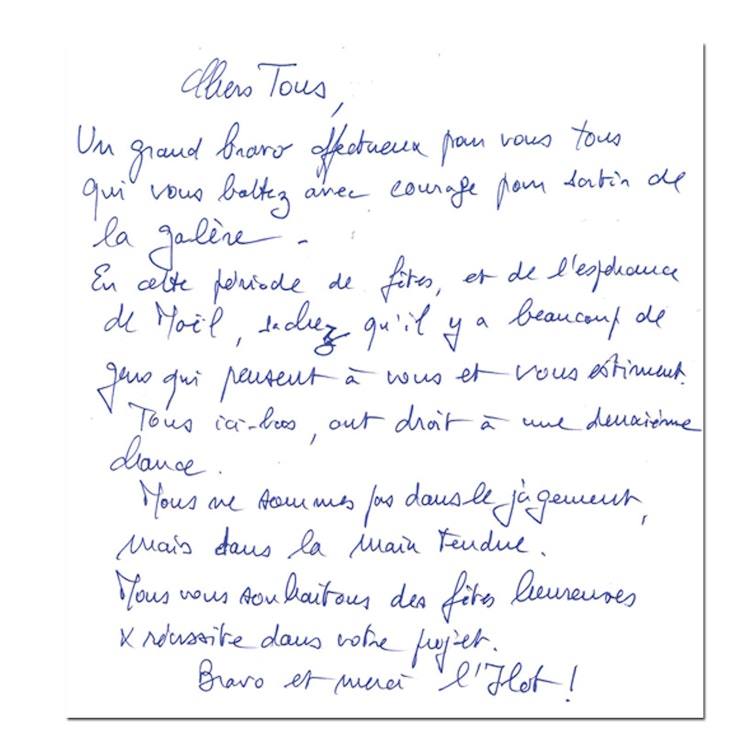 Chers Tous,
Un grand bravo affectueux pour vous tous
qui vous battez avec courage pour sortir de
la galère.
En cette période de fêtes, et de l'espérance
de Noël, sachez qu'il y a beaucoup de
gens qui pensent à vous et vous estiment.
Tous ici-bas, ont droit à une deuxième
chance.
Nous ne sommes pas dans le jugement,
mais dans la main tendue.
Nous vous souhaitons des fêtes heureuses
x réussite dans votre projet.
Bravo et merci l'Ilot !